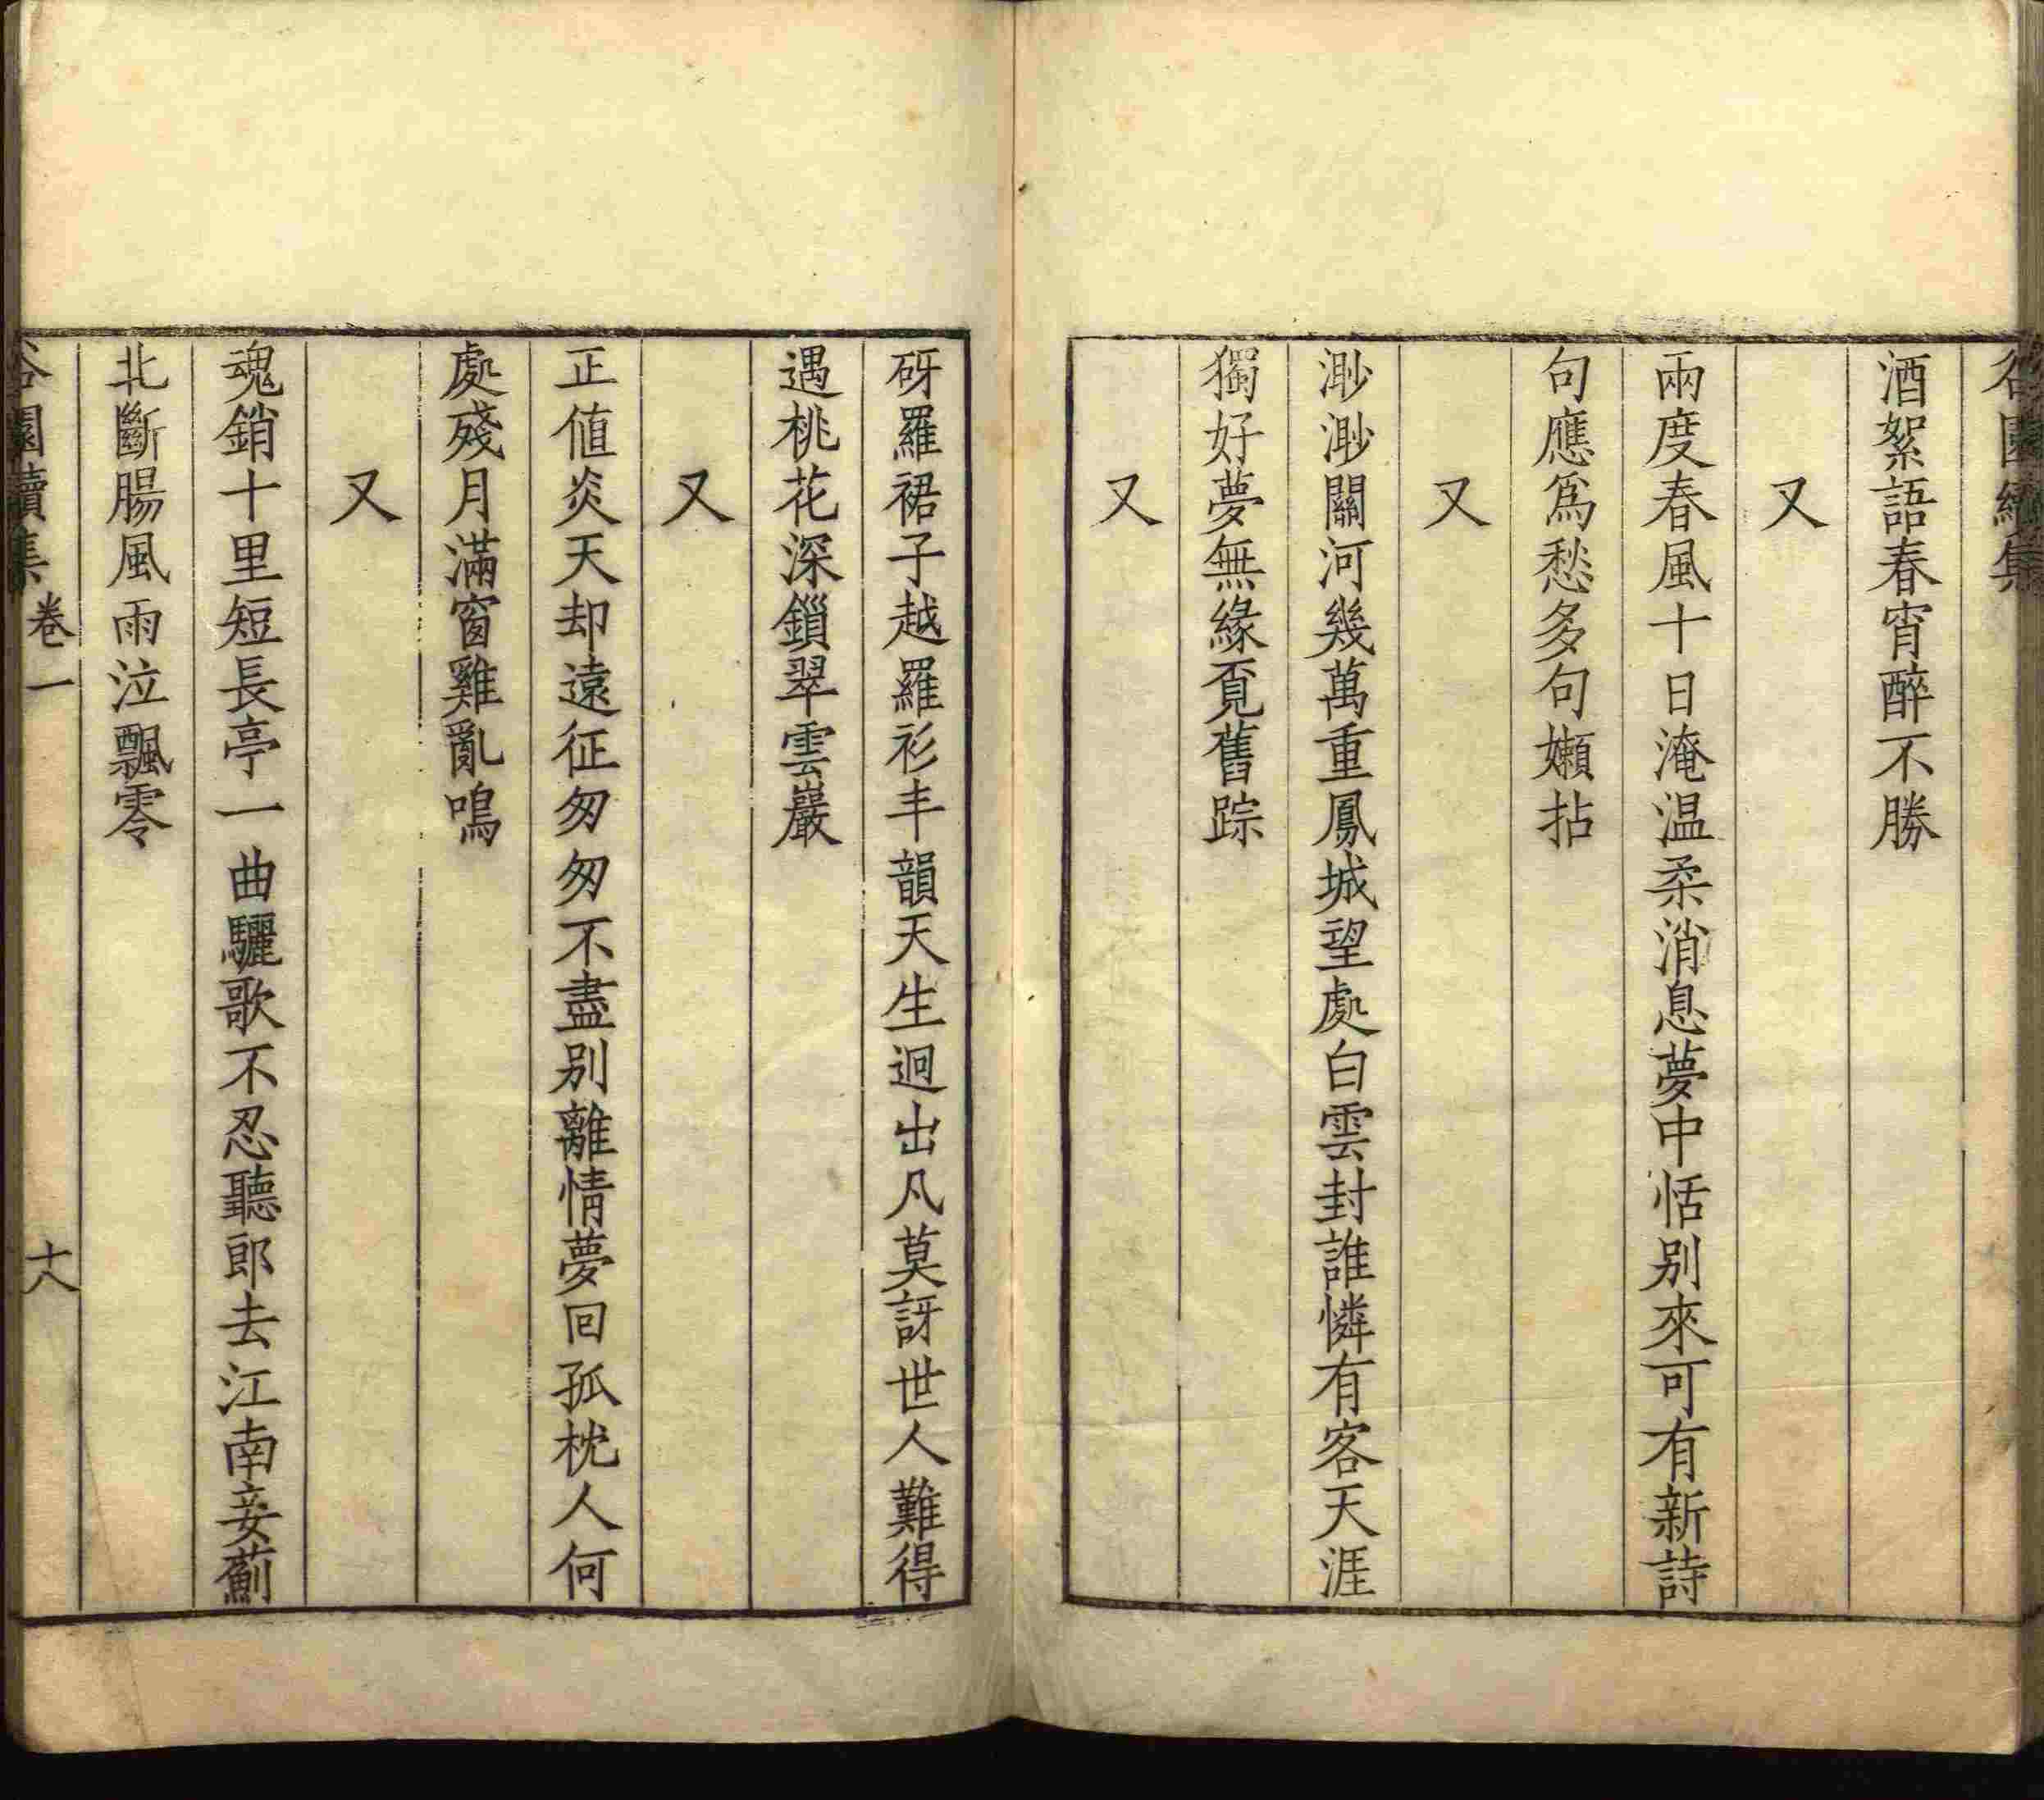 谷園續集
酒絮語春宵醉不勝
又
兩度春風十日淹温柔消息夢中恬别來可有新詩
句應爲愁多句嬾拈
又
渺渺關河幾萬重鳳城望處白雲封誰憐有客天涯
獨好夢無緣覔舊踪
又
砑羅裙子越羅衫丰韻天生迥出凡莫訝世人難得
遇桃花深鎻翠雲巖
又
正值炎天却遠征匆匆不盡别離情夢回孤枕人何
處殘月滿窗雞亂鳴
又
魂銷十里短長亭一曲驪歌不忍聽郎去江南妾薊
北斷腸風雨泣飄零
谷園續集 卷一 十八